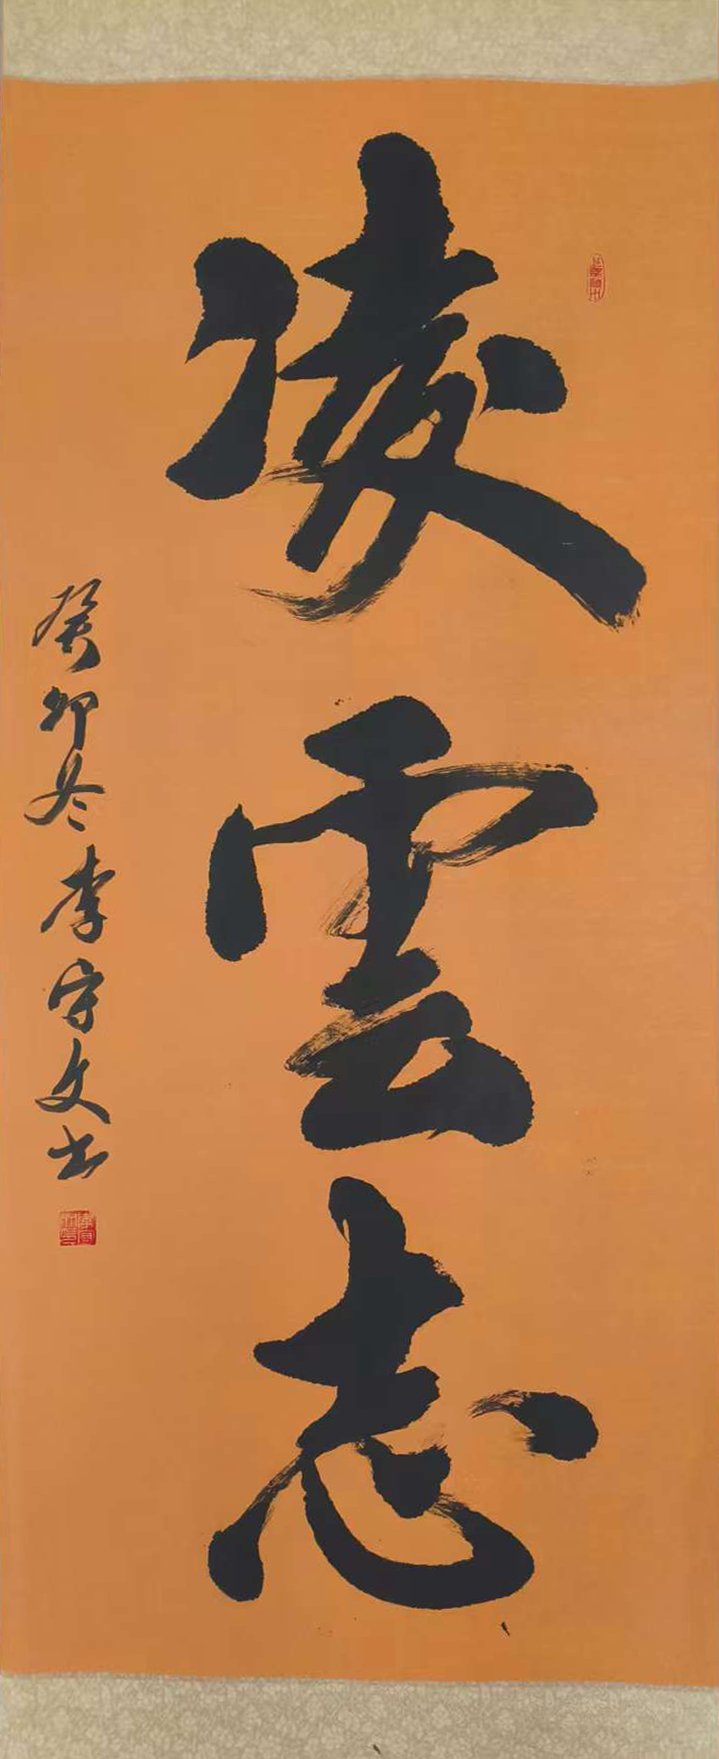 凌雲志
癸卯冬李守文书